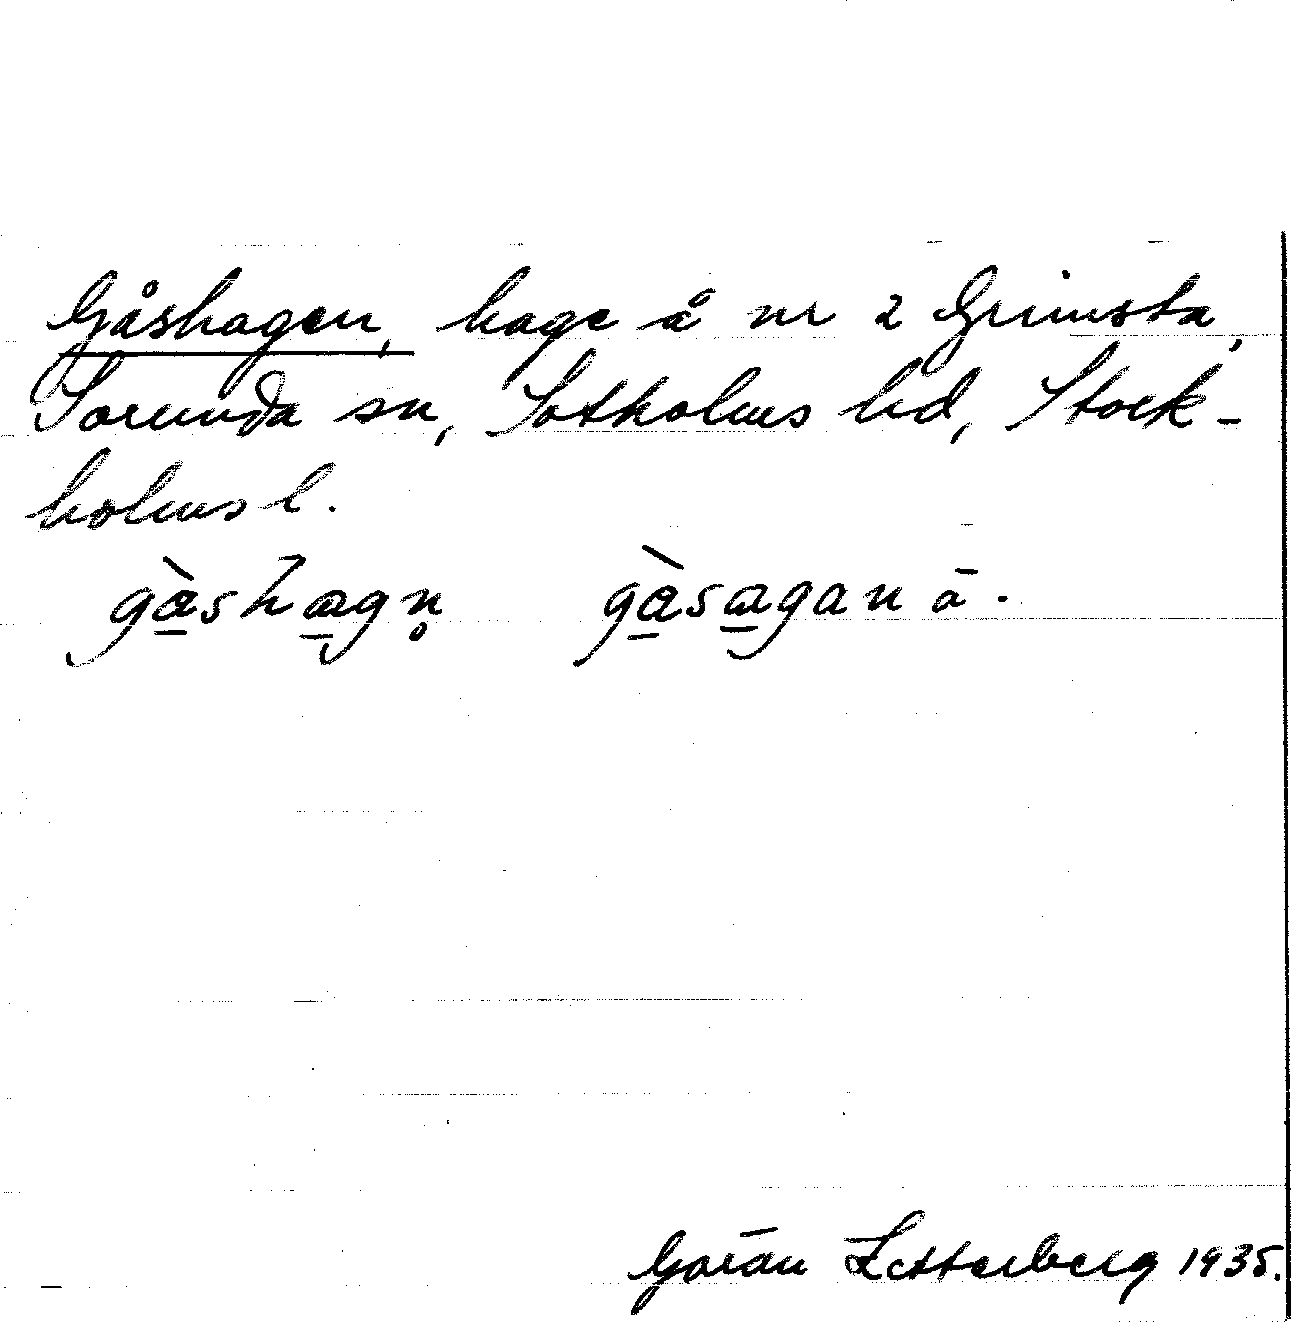 Gåshagen, hage å nr 2 Grimsta,
Sorunda sn, Sotholms hd, Stock-
holms l.
gàshagn̥ gàsagan ā.
Göran Zetterberg 1935.